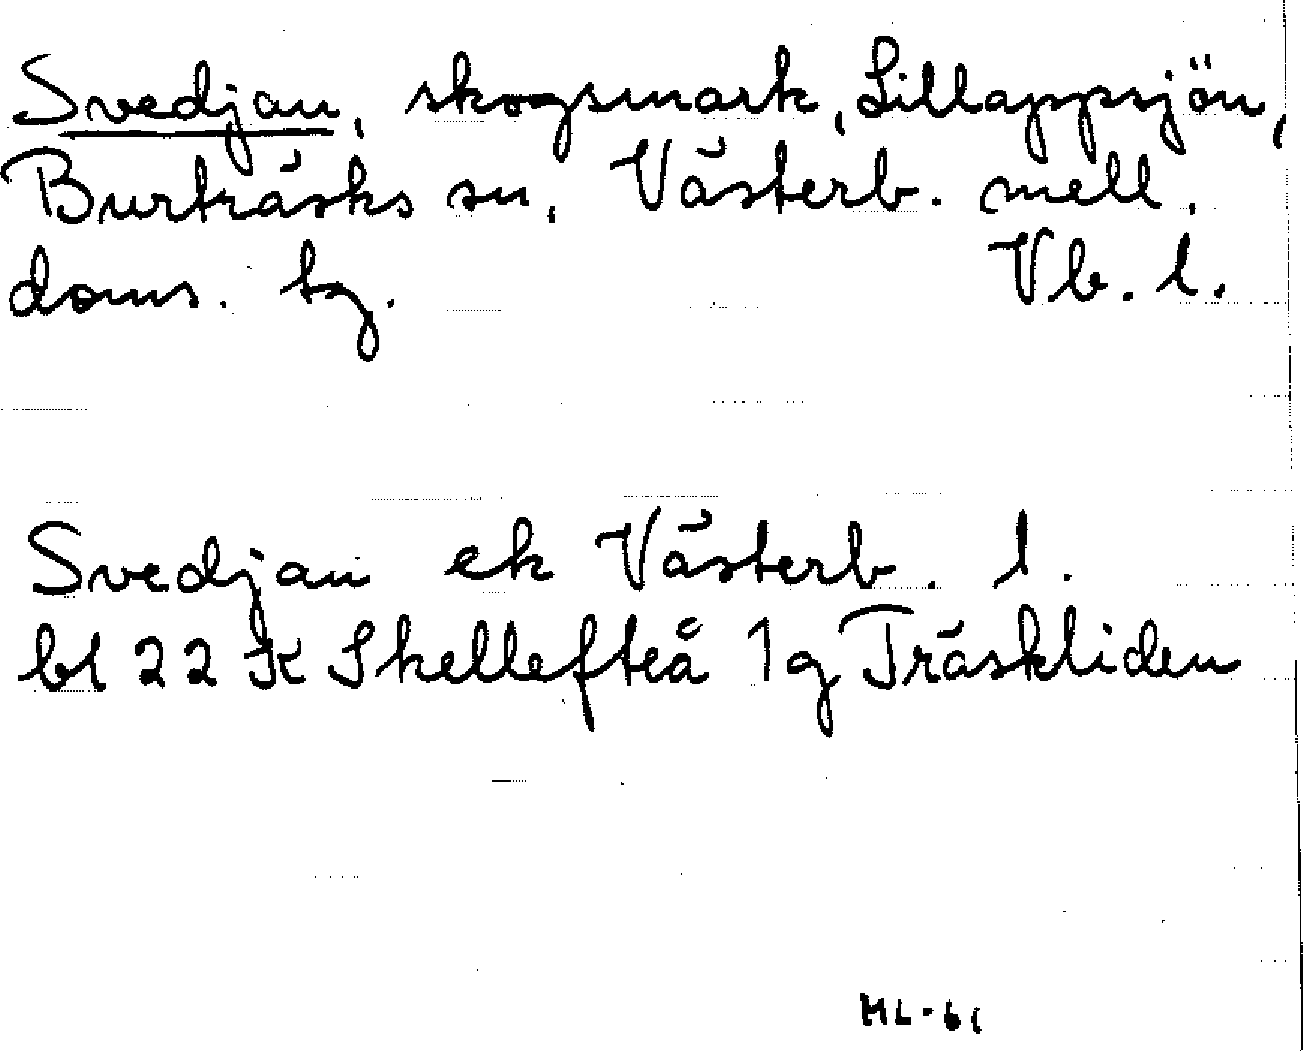 Svedjan, skogsmark, Lillappsjön,
Burträsks sn, Västerb. mell.
doms. tg. Vb. l.
Svedjan ek Västerb. l.
bl 22 K Skellefteå 1g Träskliden
ML-61